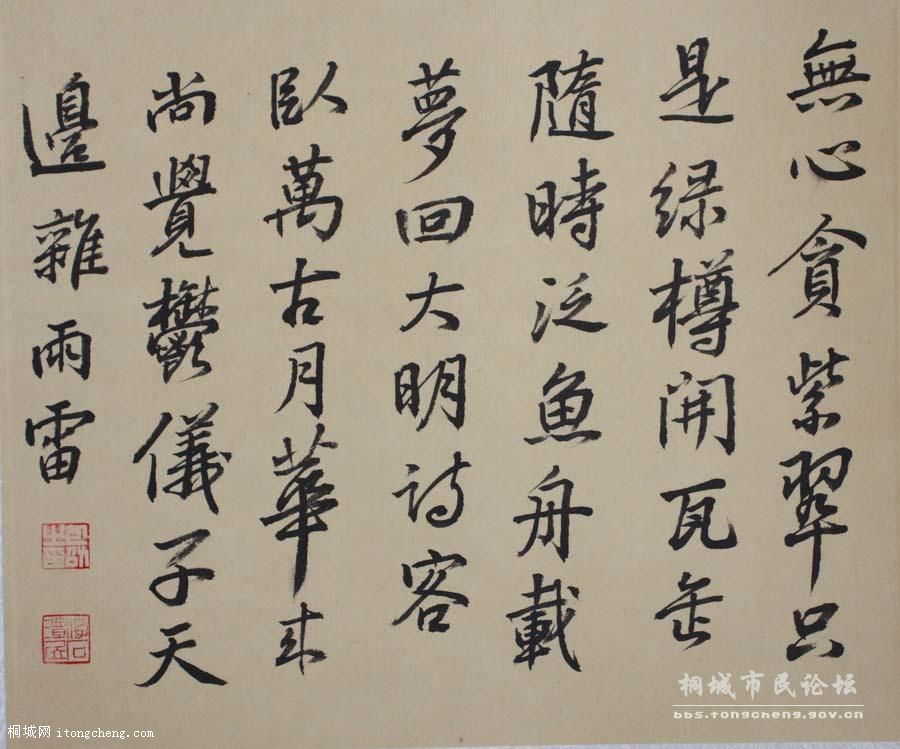 無心貪紫翠只
是绿樽開瓦缶
隨時泛魚舟載
夢回大明詩客
臥萬古月華來
尚覺鬱儀子天
邊雜雨雷
桐城市民论坛
bbs.tongcheng.gov.cn
桐城网 itongcheng.com